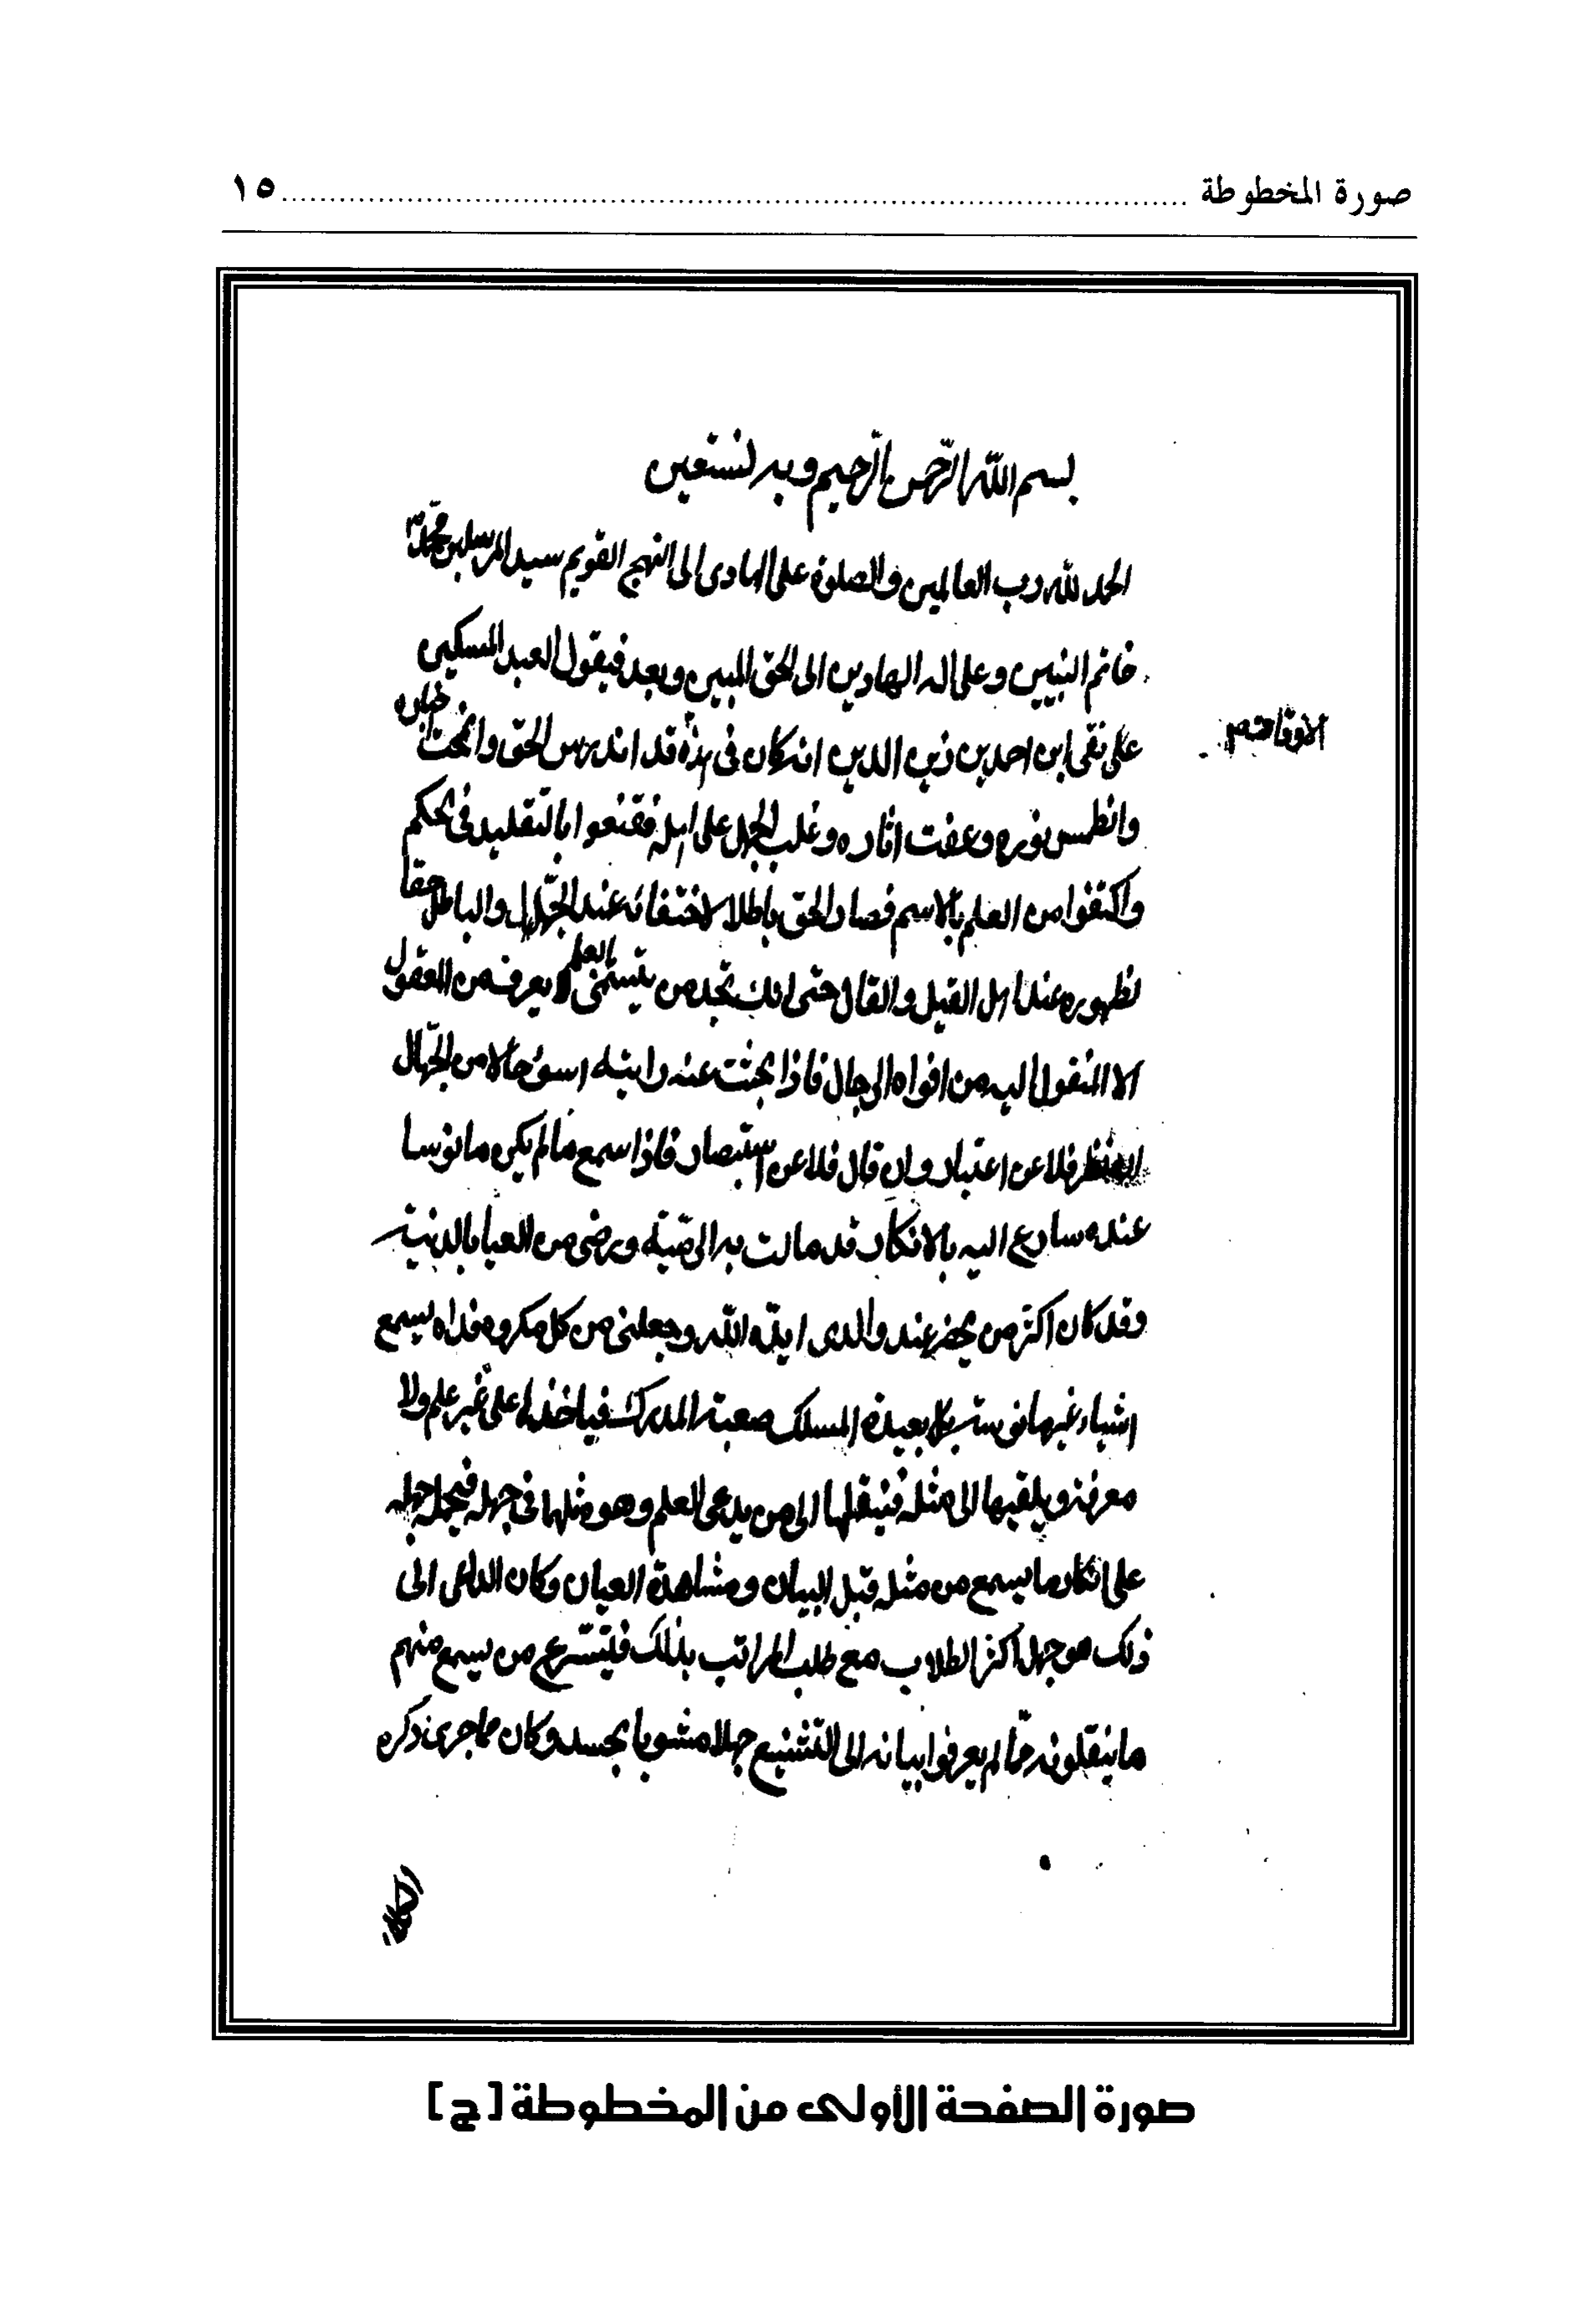 صورة المخطوطة ........ ١٥
بسم الله الرّحمن الرّحيم وبه نستعين
الحمد لله رب العالمين والصلوة على الهادى الى النهج القويم سيد المرسلين محمّد
خاتم النبيين وعلى اله الهادين الى الحق المبين وبعد فيقول العبد المسكين
على نقى ابن احمد بن زين الدين انه كان فى هذه قد اندرس الحق
الاوقات
وانطمس نوره وعفت اثاره وغلب الجهل على اهله فقنعوا بالتقليد فى الحكم
واكتفوا من العلم بالاسم فصار الحق باطلا لاختفائه عند الجهّال والباطل حقا
لظهوره عند اهل القيل والقال حتى انك تجد من يتسمّى بالعلم لا يعرف من المعقول
الا المنقول اليه من افواه الرجال فاذا بحثت عنه رايته اسوء حالا من الجهّال
فلا عن اعتبار وان قال فلا عن استبصار فاذا سمع ما لم يكن مانوسا
عنده سارع اليه بالانكار قد مالت به ويرضى من بالدنية
وقد كان اكثر من يحضر عند والدى ايّده الله وجعلنى من كل مكروه فداه يسمع
اشياء غير مانوسة بل بعيدة المسلك صعبة المدرك فياخذها على غير علم ولا
معرفة ويلقيها الى مثله فينقلها الى من يدعى العلم وهو مثلها فى جهله فيحمل جهله
على انكار ما يسمع من مثله قبل البيان ومشاهدة العيان وكان الداعى الى
ذلك هو جهل اكثر الطلاب مع طلب المراتب بذلك فيتسرع من يسمع منهم
ما ينقلونه ممّا لم يعرفوا بيانه الى التشنيع جهلا مشوبا بحسد وكان مما جرى ذكره
صورة الصفحة الأولى من المخطوطة [ج]